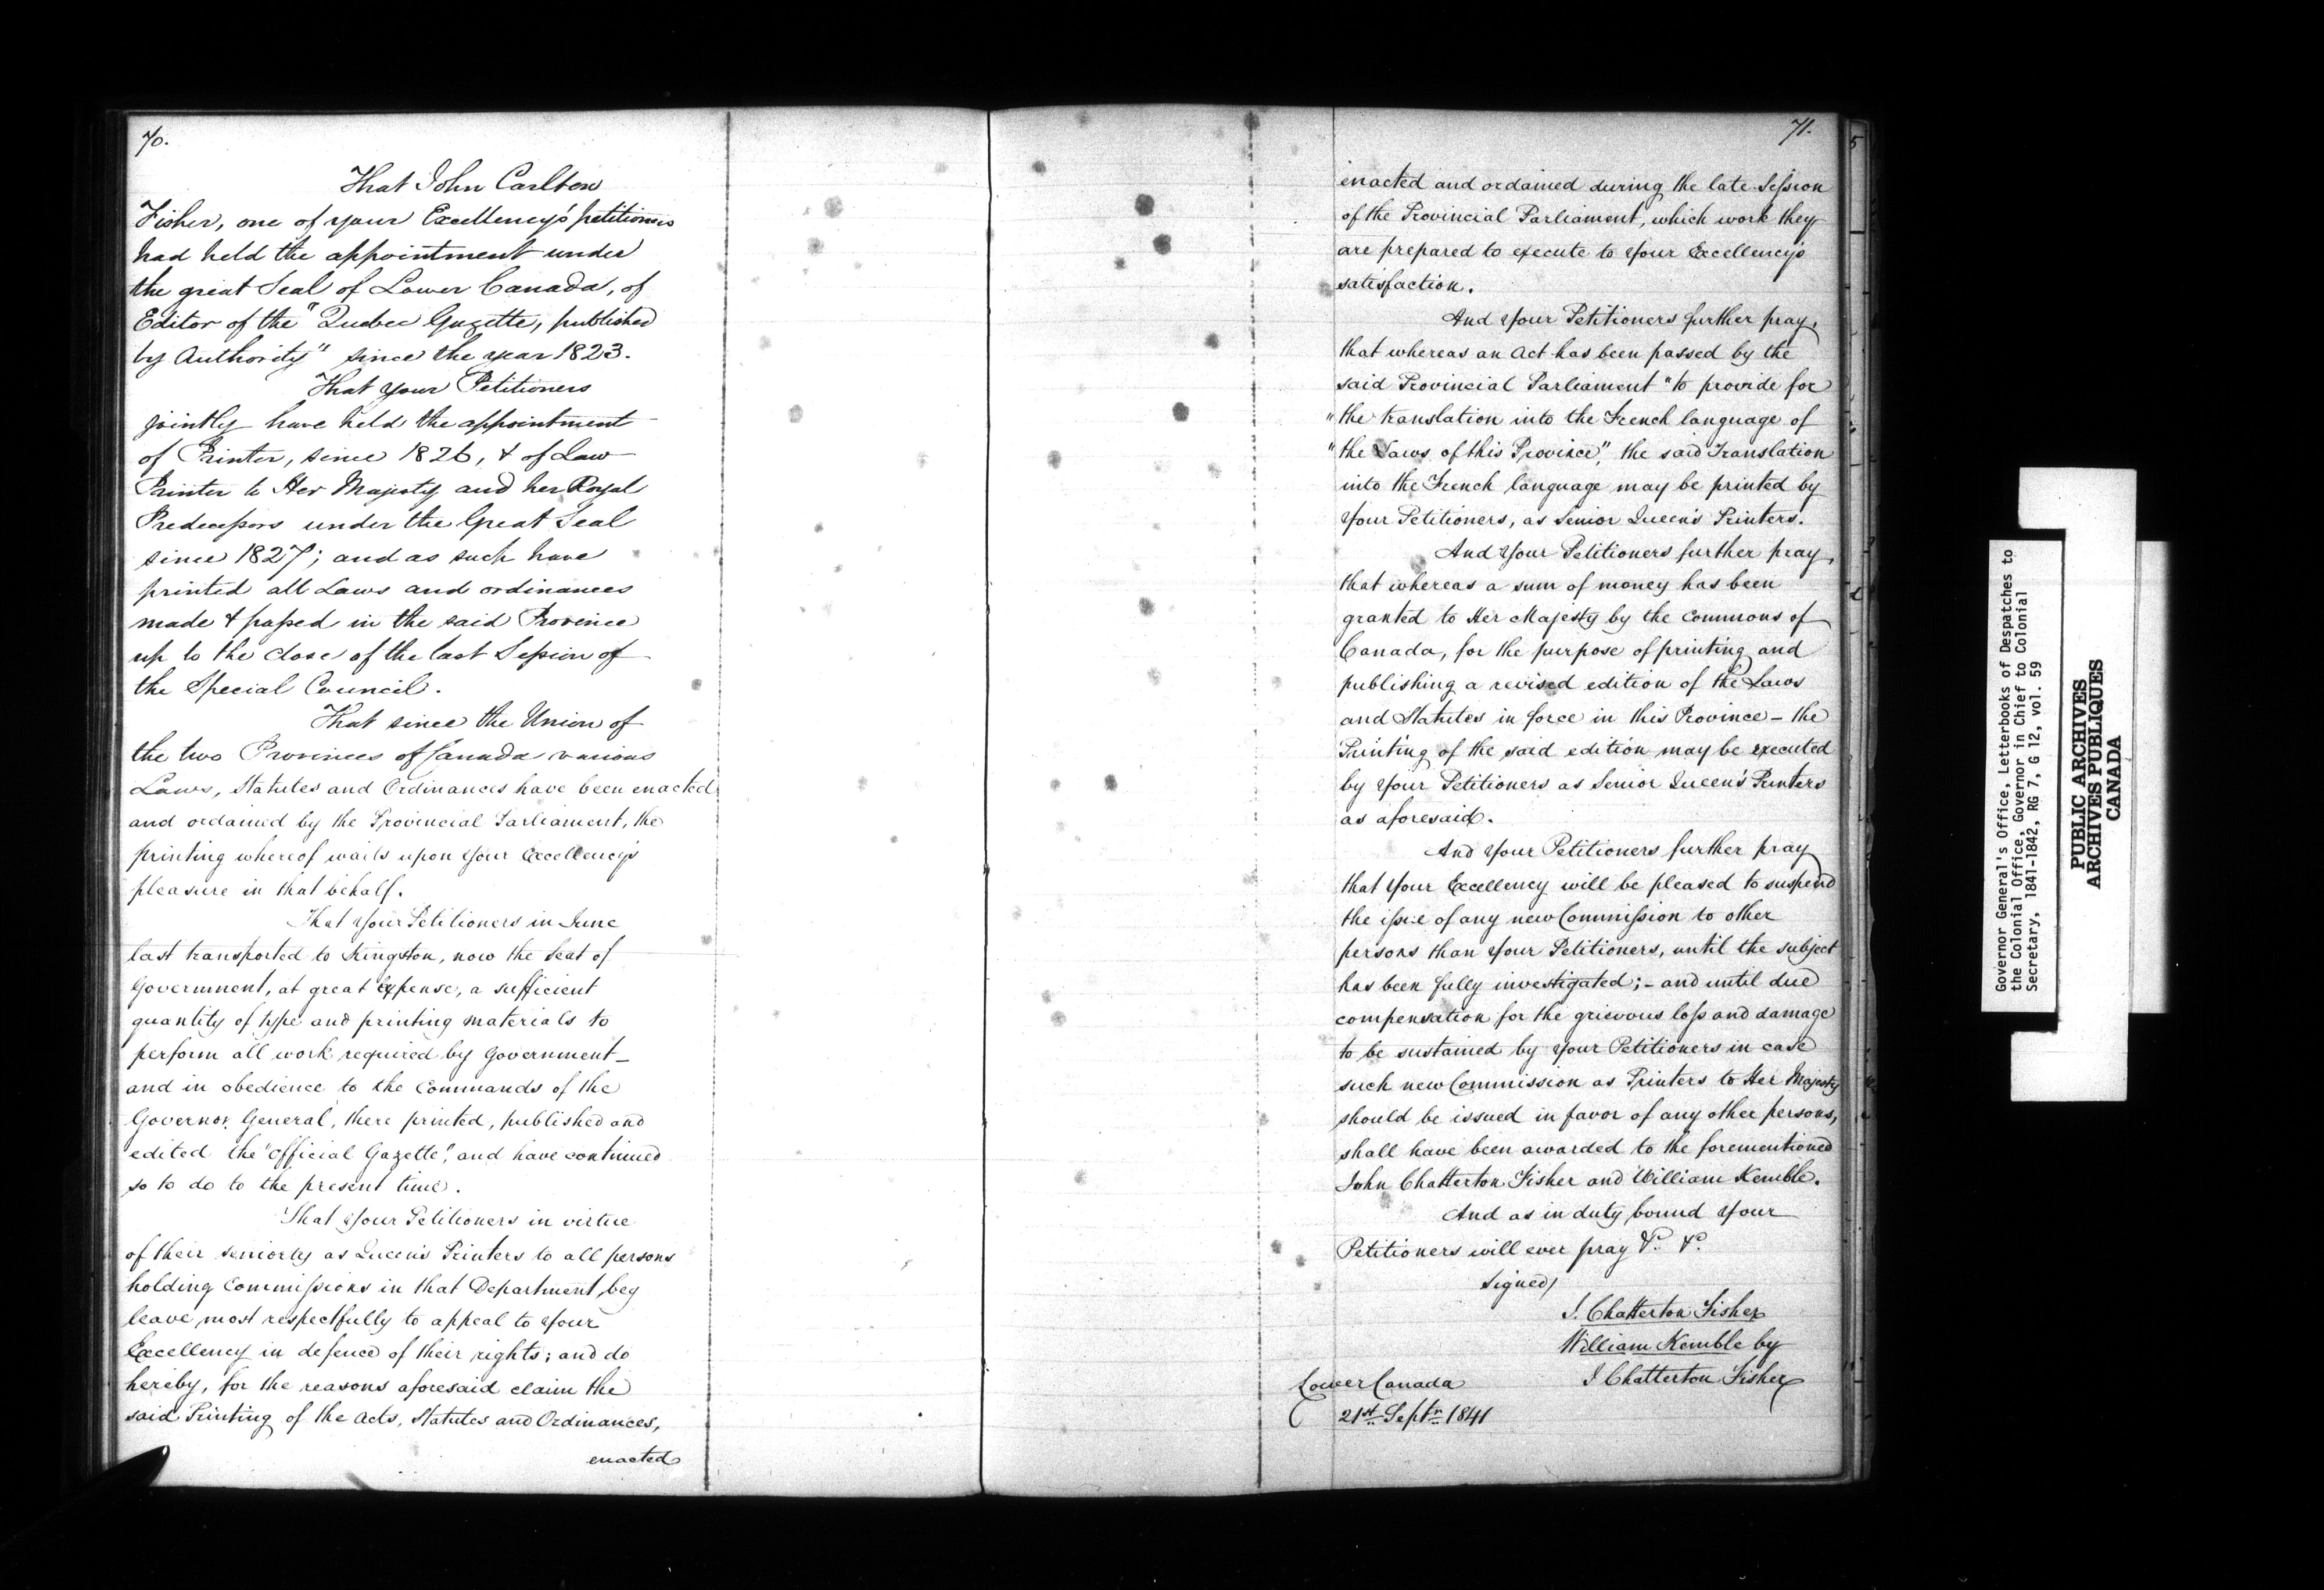 70.
That John Carlton
Fisher, one of your Excellency's petitioners
had held the appointment under
the great Seal of Lower Canada, of
Editor of the "Quebec Gazette, published
by Authority" since the year 1823.
That your Petitioners
jointly have held the appointment
of Printer, since 1826, & of Law
Printer to Her Majesty and her Royal
Predecessors under the Great Seal
since 1827; and as such have
printed all Laws and ordinances
made & passed in the said Province
up to the close of the last Session of
the Special Council.
That since the Union of
the two Provinces of Canada various
Laws, Statutes and Ordinances have been enacted
and ordained by the Provincial Parliament, the
printing whereof waits upon Your Excellency's
pleasure in that behalf.
That Your Petitioners in June
last transported to Kingston, now the Seat of
Government, at great expense, a sufficient
quantity of type and printing materials to
perform all work required by Government_
and in obedience to the Commands of the
Governor General, there printed, published and
edited the "Official Gazette", and have continued
so to do to the present time.
That Your Petitioners in virtue
of their seniority as Queen's Printers to all persons
holding Commissions in that Department, beg
leave most respectfully to appeal to Your
Excellency in defence of their rights; and do
hereby, for the reasons aforesaid claim the
said Printing of the Acts, Statutes and Ordinances,
enacted
71.
enacted and ordained during the late Session
of the Provincial Parliament, which work they
are prepared to execute to Your Excellency's
satisfaction.
And Your Petitioners further pray,
that whereas an Act has been passed by the
said Provincial Parliament "to provide for
"the translation into the French language of
"the Laws of this Province", the said Translation
into the French language may be printed by
Your Petitioners, as Senior Queen's Printers.
And Your Petitioners further pray,
that whereas a sum of money has been
granted to Her Majesty by the Commons of
Canada, for the purpose of printing and
publishing a revised edition of the Laws
and Statutes in force in this Province – the
Printing of the said edition may be executed
by Your Petitioners as Senior Queen's Printers
as aforesaid.
And Your Petitioners further pray
that Your Excellency will be pleased to suspend
the issue of any new Commission to other
persons than Your Petitioners, until the subject
has been fully investigated; – and until due
compensation for the grievous loss and damage
to be sustained by Your Petitioners in case
such new Commission as Printers to Her Majesty
should be issued in favor of any other persons,
shall have been awarded to the forementioned
John Chatterton Fisher and William Kemble.
And as in duty bound Your
Petitioners will ever pray &c. &c.
signed/
J. Chatterton Fisher
William Kemble by
J Chatterton Fisher
Lower Canada
21st Septr 1841
Governor General's Office, Letterbooks of Despatches to
the Colonial Office, Governor in Chief to Colonial
Secretary, 1841-1842, RG 7, G 12, vol. 59
PUBLIC ARCHIVES
ARCHIVES PUBLIQUES
CANADA